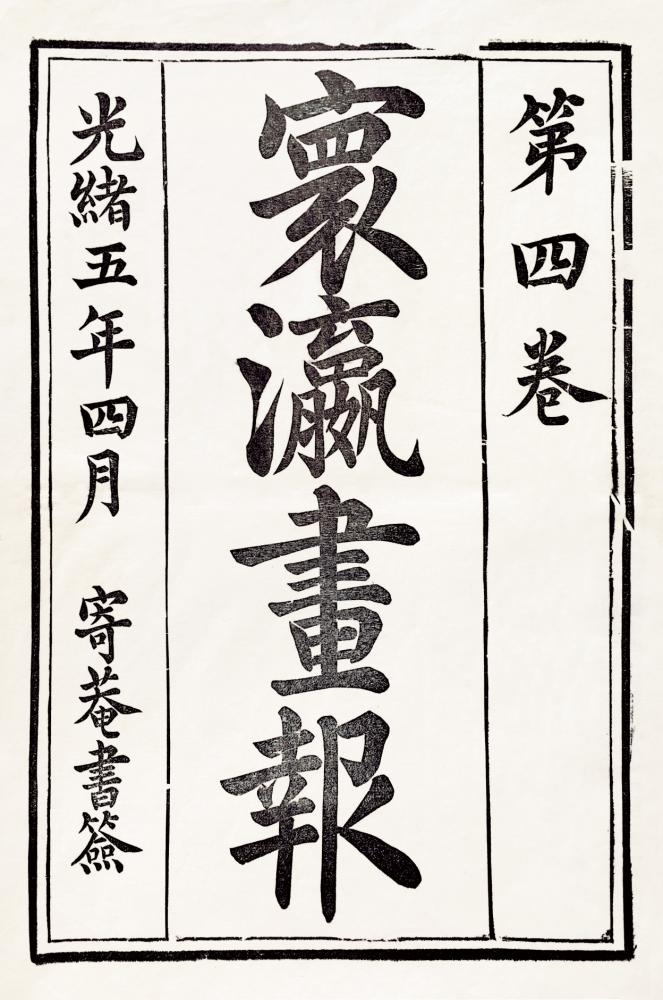 第四卷
寰瀛畫報
光緒五年四月 寄菴書簽